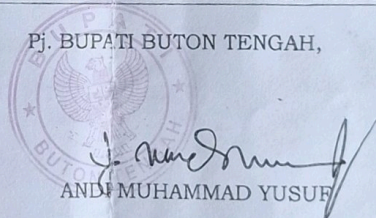 Pj. BUPATI BUTON TENGAH,
BUPATI
BUTON TENGAH
ANDI MUHAMMAD YUSUF